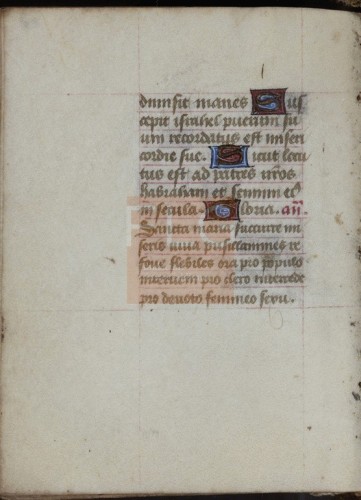 dimisit inanes Sus
cepit israhel puerum su
um recordatus est miseri
cordie sue. Sicut locu
tus est ad patres nr̄os
habraham et semini ei᷒
in secula. Gloria. an̄.
Sancta maria succurre mi
seris iuua pusillanimes re
foue flebiles ora pro populo
interueni pro clero intercede
pro deuoto femineo sexu.